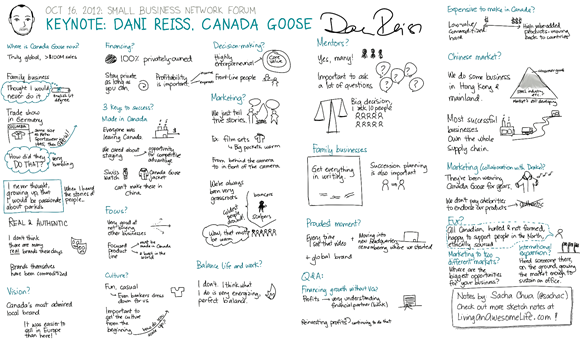 OCT 16, 2012: SMALL BUSINESS NETWORK FORUM
KEYNOTE: DANI REISS, CANADA GOOSE
Dani Reiss
Where is Canada Goose now?
Truly global,
Family business
Thought I would
never do it
Trade show
in Germany
How did they
DO THAT?
I never thought,
growing up, that
I would be passionate
about parkas.
When I heard
the stories of
people.
REAL & AUTHENTIC
I don't think
there are many
real brands these days
Brands themselves
have been commoditized
Vision?
Canada's most admired
local brand
It was easier to
sell in Europe
than here!
Financing?
100% privately-owned
Stay private
as long as
you can.
Profitability is
important
3 Keys to success?
Made in Canada
Everyone was
leaving Canada
We cared about
staying
opportunity
for competitive
advantage
Swiss
watch
Canada
Goose
jacket
Can't make these in
China
Focus?
Very good at
not buying
other businesses
Focused
product
line
made in Canada
best in the
world
Culture?
Fun, casual
Even bankers dress
down for us
Important to
get the culture
from the
beginning
Decision-making?
Highly
entrepreneurial
Front-line people
Marketing?
We just tell
true stories.
Ex. film sets
Big parkas, warm
From behind the camera
to in front of the camera
We're always
been very
grassroots
bouncers
Wow, that must
be warm
Balance life and work?
I don't. I think what
I do is very energizing,
perfect balance.
Mentors?
Yes, many!
Important to ask
a lot of questions.
Big decision,
I ask 10 people
Family businesses
Get everything
in writing.
Succession planning
is also important
Proudest moment?
Every time
I see that video
Moving into
new headquarters
remembering where we started
global brand
Q&A:
Financing growth without VCs?
Profits
very understanding
financial partner (bank)
Reinvesting profits?
continuing to do that
Expensive to make in Canada?
Low-value/
commoditized
here
High value-added
products moving
back to countries!
Chinese market?
We do some business
in Hong Kong &
mainland.
Most successful
businesses
Own the whole
supply chain.
They've been wearing
Canada Goose for years.
We don't pay celebrities
to endorse our products
Fur?
All Canadian, hunted & not farmed,
happy to support people in the north,
ethically sourced
Marketing to
different markets?
Where are the
biggest opportunities
for your business?
International
expansion?
Need someone there,
on the ground, growing
the market enough to
sustain an office.
Notes by Sacha Chua (@sachac)
Check out more sketch notes at
LivingAnAwesomeLife.com!